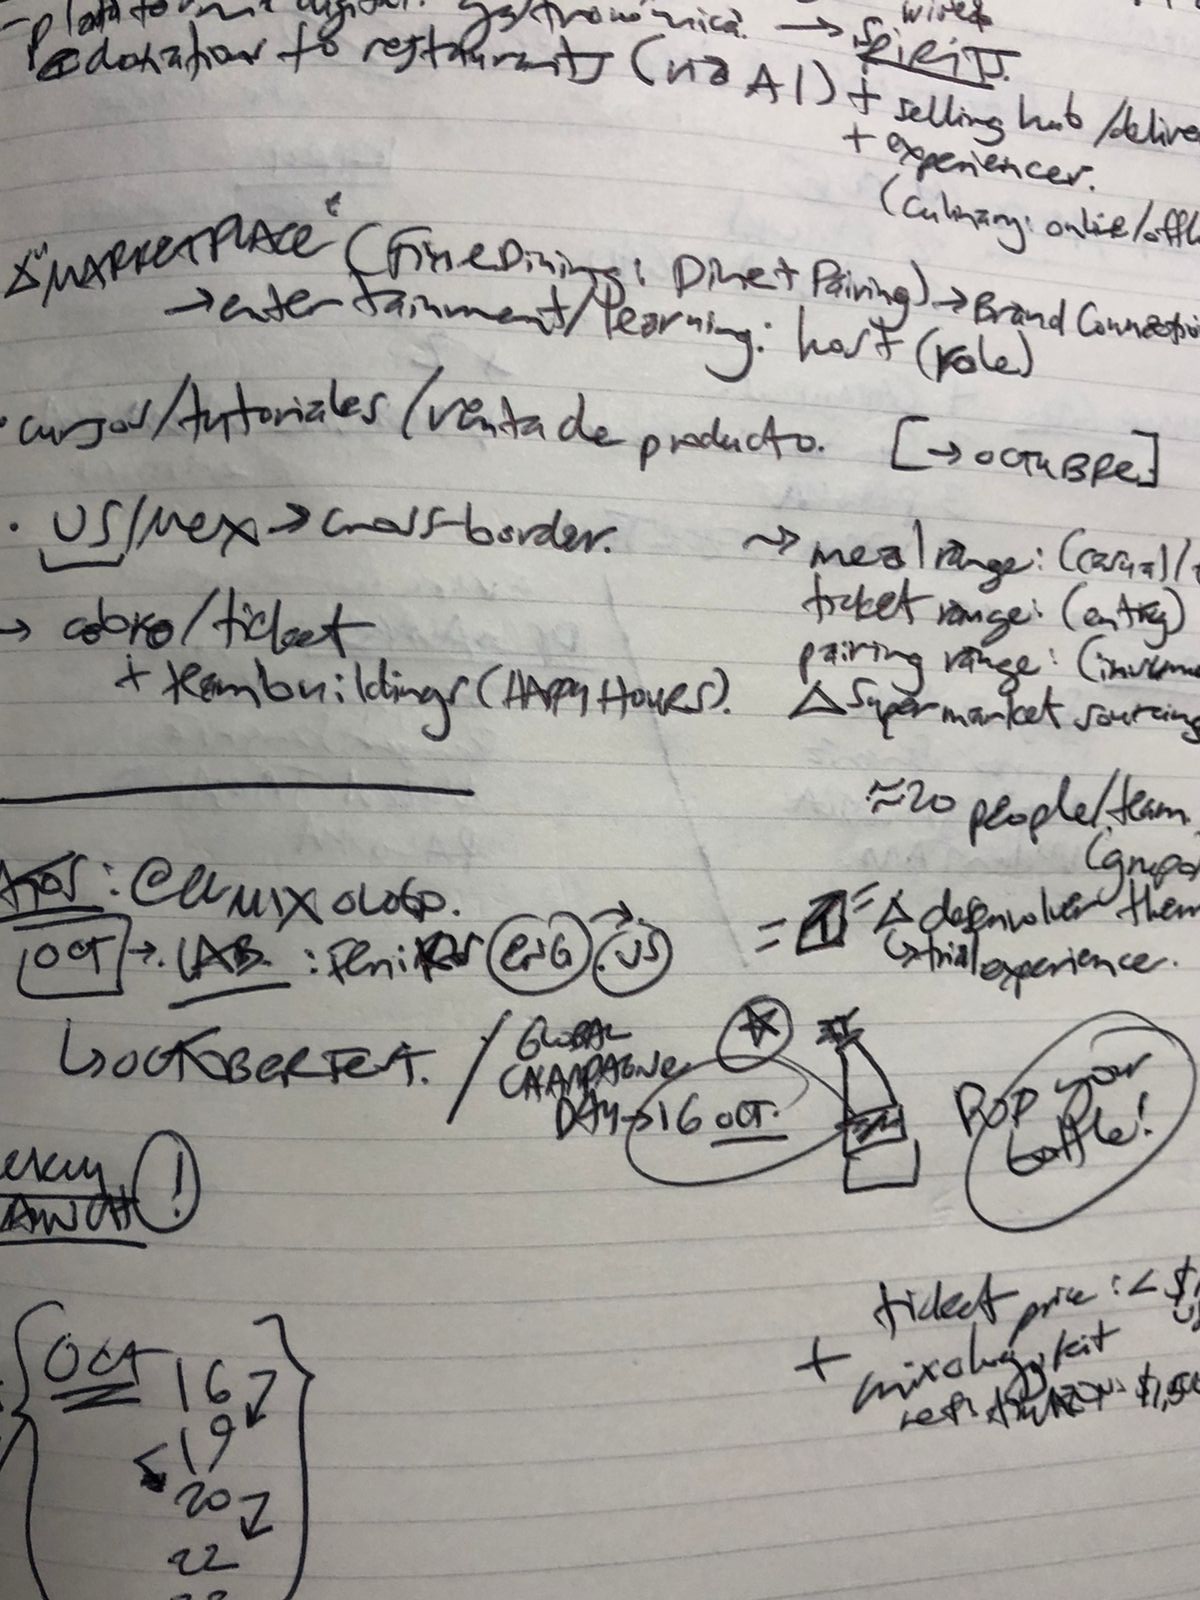 digital: gastronómica. → wired
to restaurants (via AI) SPIRITS.
+ selling hub /delive
+ experiences.
(culinary: online/offl
Δ "MARKETPLACE" (Fine Dining: Direct Pairing) → Brand Connectio
→ entertainment/learning: host (role)
· cursos/tutoriales/venta de producto. [→ OCTUBRE]
· US/Mex → cross-border.
→ cobro/ticket
+ teambuildings (HAPPY HOURS).
~> meal range: (casual/
ticket range: (entry)
pairing range:
Δ Supermarket sourcing
≈20 people/team
(grupo
= 1 = Δ them
↳ trial experience.
OCT → LAB: ENG US
↳ OCTOBERFEST. / GLOBAL
CHAMPAGNE
DAY → 16 OCT.
POP your
bottle!
!
ticket price: < $1
+ mixology kit
OCT 16
19
20
22